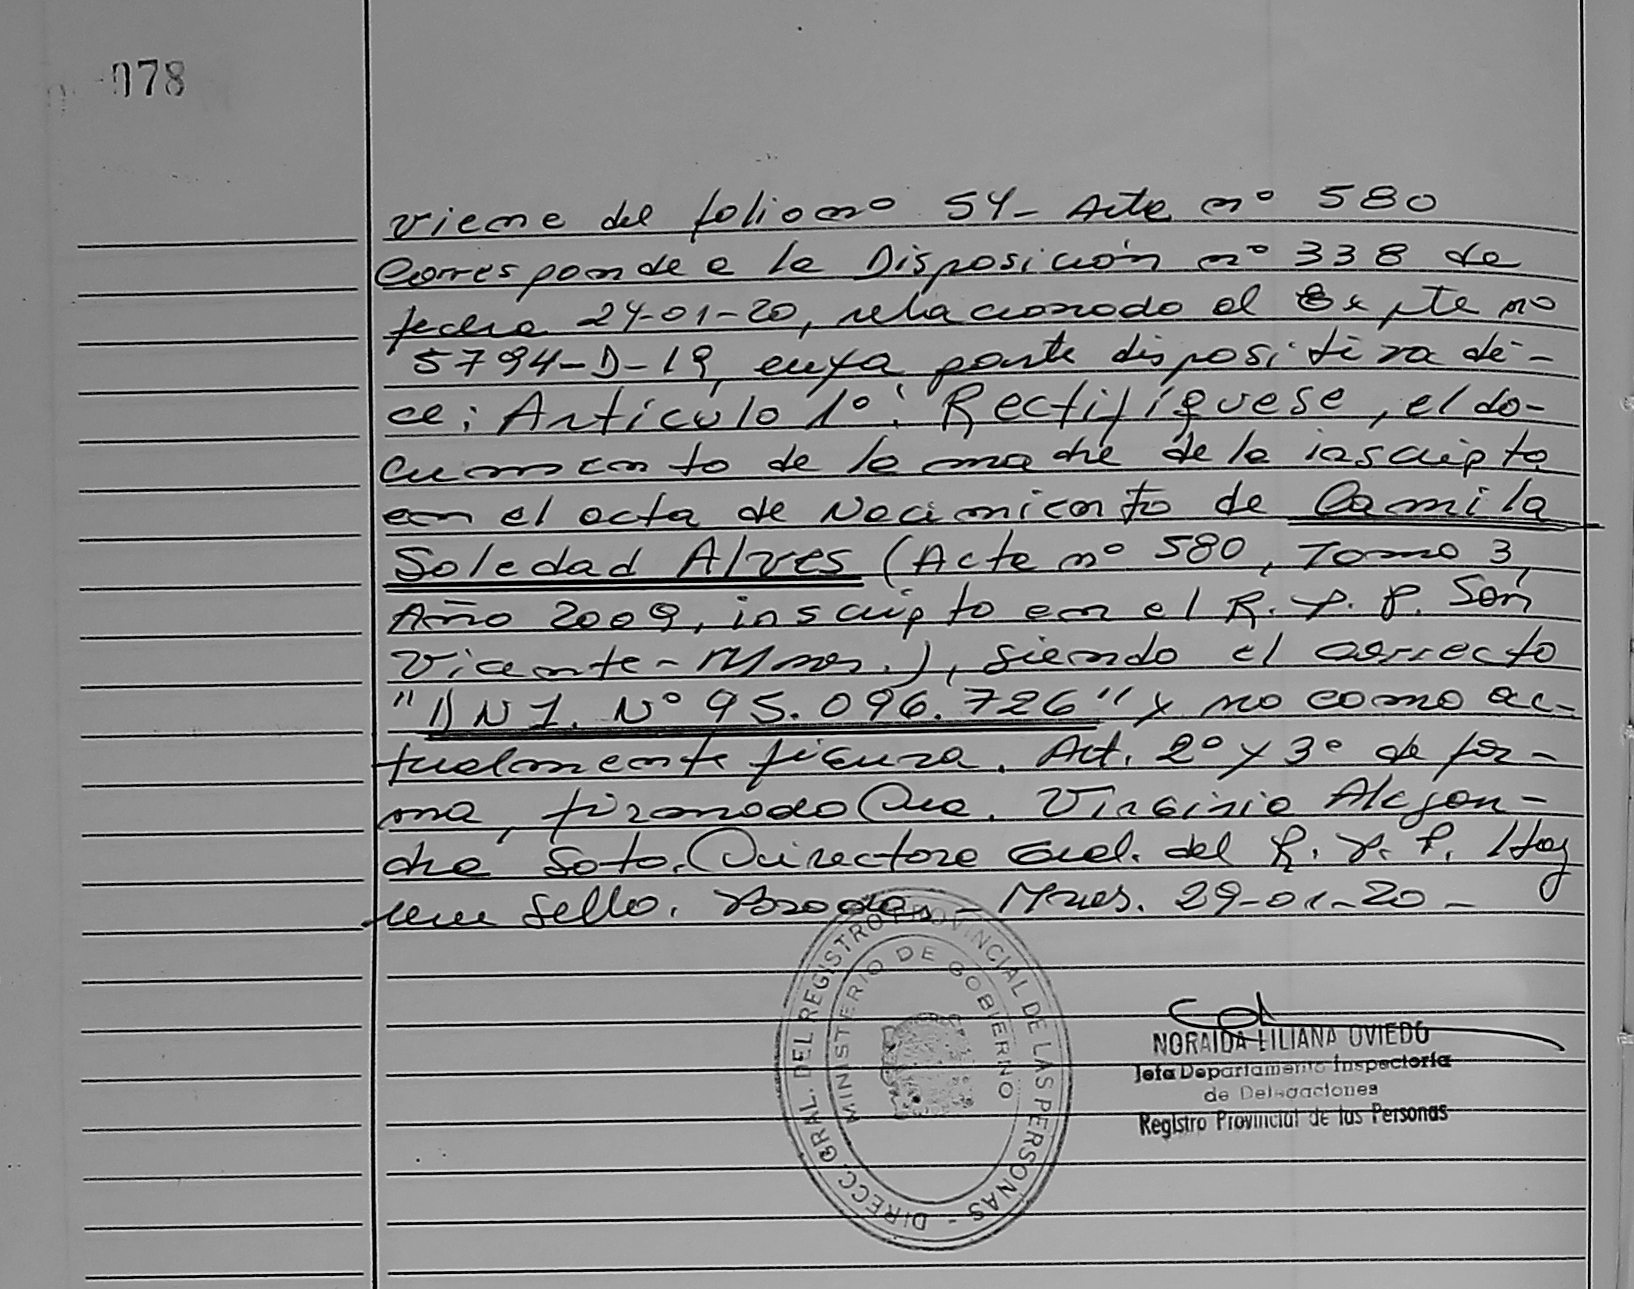 078
viene del folio nº 54- Acta nº 580
Corresponde a la Disposición nº 338 de
fecha 24-01-20, relacionado al Expte nº
5794-D-19, cuya parte dispositiva di-
ce: Artículo 1º: Rectifíquese, el do-
cumento de la madre de la inscripta
en el acta de Nacimiento de Camila
Soledad Alves (Acta nº 580, Tomo 3,
Año 2009, inscripto en el R. P. P. San
Vicente-Mnes.), siendo el correcto
"DNI. Nº 95.096.726" y no como ac-
tualmente figura. Art. 2º y 3º de for-
ma, firmado Dra. Virginia Alejan-
dra Soto. Directora Gral. del R. P. P. Hay
un sello. Posadas - Mnes. 29-01-20-
DIRECC. GRAL. DEL REGISTRO PROVINCIAL DE LAS PERSONAS -
MINISTERIO DE GOBIERNO
NORAIDA LILIANA OVIEDO
Jefa Departamento Inspectoría
de Delegaciones
Registro Provincial de las Personas